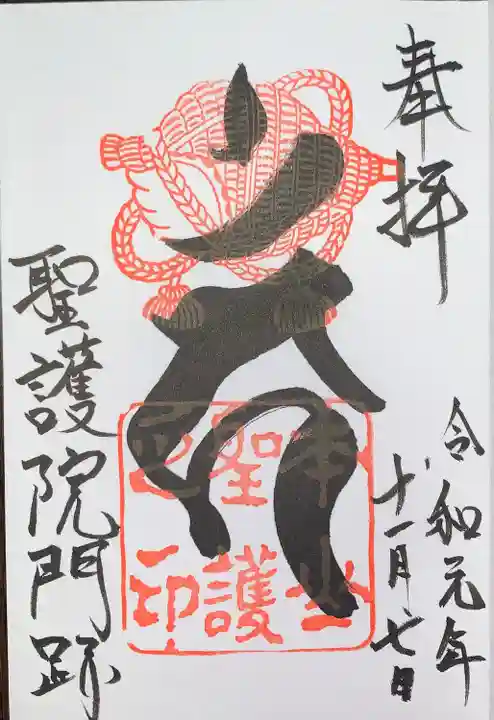 奉拝
令和元年
十一月七日
本山
聖護
之印
聖護院門跡